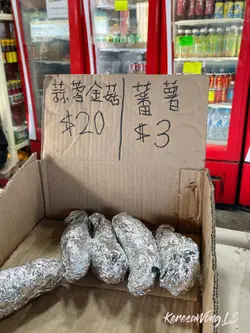 蒜蓉金菇 蕃薯
$20 $3
KeresaWong LS